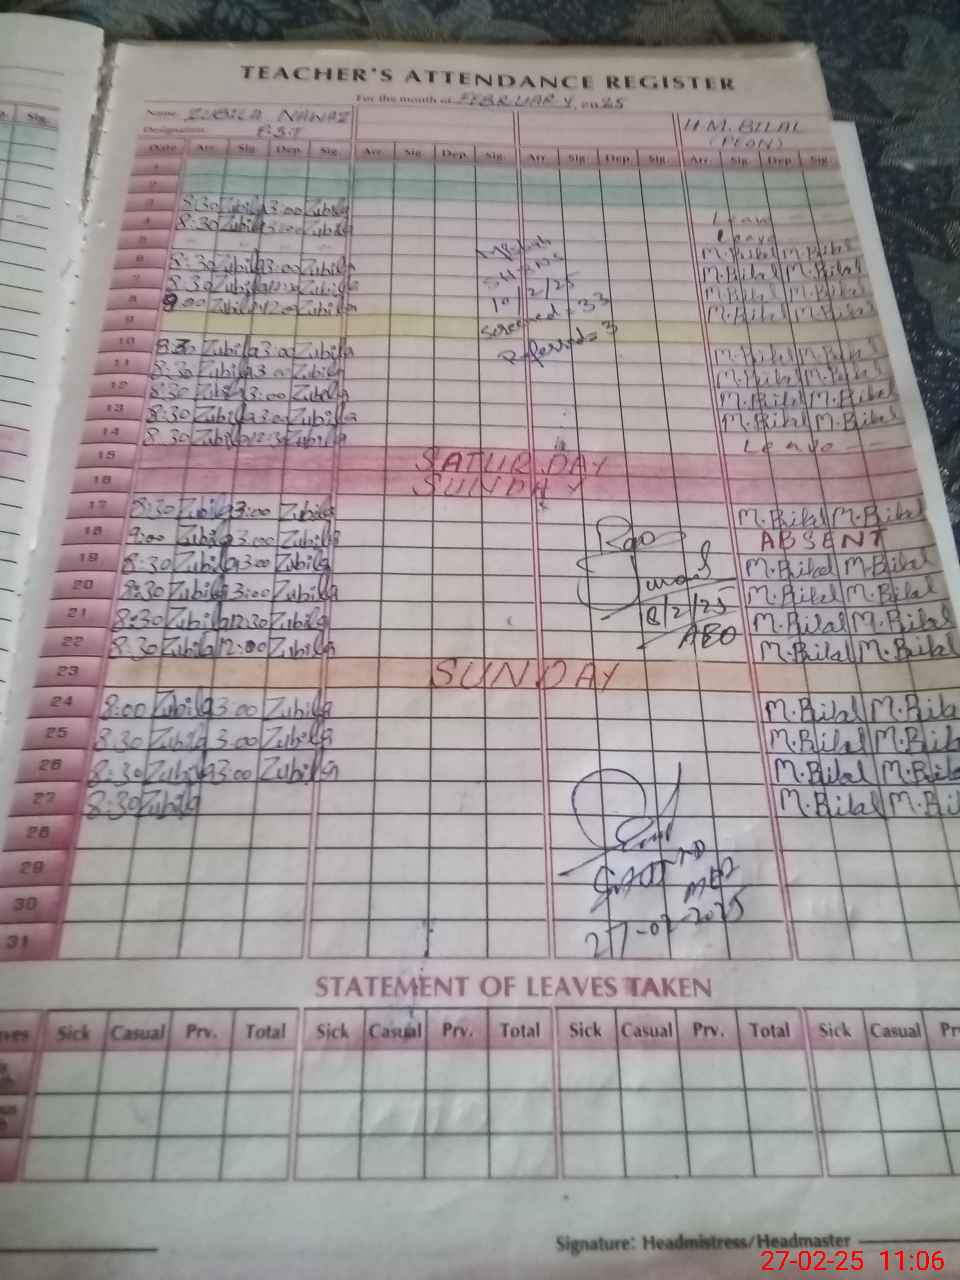 TEACHER'S ATTENDANCE REGISTER
For the month of FEBRUARY, on 25
Name: ZUBILA NAWAZ
H M. BILAL
Designation: P.S.T
(PEON)
Sig.
Date Arr. Sig. Dep. Sig. Arr. Sig. Dep. Sig. Arr. Sig. Dep. Sig. Arr. Sig. Dep. Sig.
1
2
3 8:30 Zubila 3:00 Zubila Leave
4 8:30 Zubila 3:00 Zubila Leave
5 M.Bilal M.Bilal
6 8:30 Zubila 3:00 Zubila M.Bilal M.Bilal
7 8:30 Zubila Zubila M.Bilal M.Bilal
8 9:00 Zubila 12:00 Zubila M.Bilal M.Bilal
SH&NS
10/2/25
Screened = 33
Referred = 3
9
10 8:30 Zubila 3:00 Zubila M.Bilal M.Bilal
11 8:30 Zubila 3:00 Zubila M.Bilal M.Bilal
12 8:30 Zubila 3:00 Zubila M.Bilal M.Bilal
13 8:30 Zubila 3:00 Zubila M.Bilal M.Bilal
14 8:30 Zubila 12:30 Zubila Leave
15 SATURDAY
16 SUNDAY
17 8:30 Zubila 3:00 Zubila M.Bilal M.Bilal
18 9:00 Zubila 3:00 Zubila ABSENT
19 8:30 Zubila 3:00 Zubila M.Bilal M.Bilal
20 8:30 Zubila 3:00 Zubila M.Bilal M.Bilal
21 8:30 Zubila 12:30 Zubila M.Bilal M.Bilal
22 8:30 Zubila 12:00 Zubila M.Bilal M.Bilal
Rao
18/2/25
AEO
23 SUNDAY
24 8:00 Zubila 3:00 Zubila M.Bilal M.Bilal
25 8:30 Zubila 3:00 Zubila M.Bilal M.Bilal
26 8:30 Zubila 3:00 Zubila M.Bilal M.Bilal
27 8:30 Zubila M.Bilal M.Bil
28
29
30
31
27-02-2025
STATEMENT OF LEAVES TAKEN
ves Sick Casual Prv. Total Sick Casual Prv. Total Sick Casual Prv. Total Sick Casual Pr
Signature: Headmistress/Headmaster
27-02-25 11:06